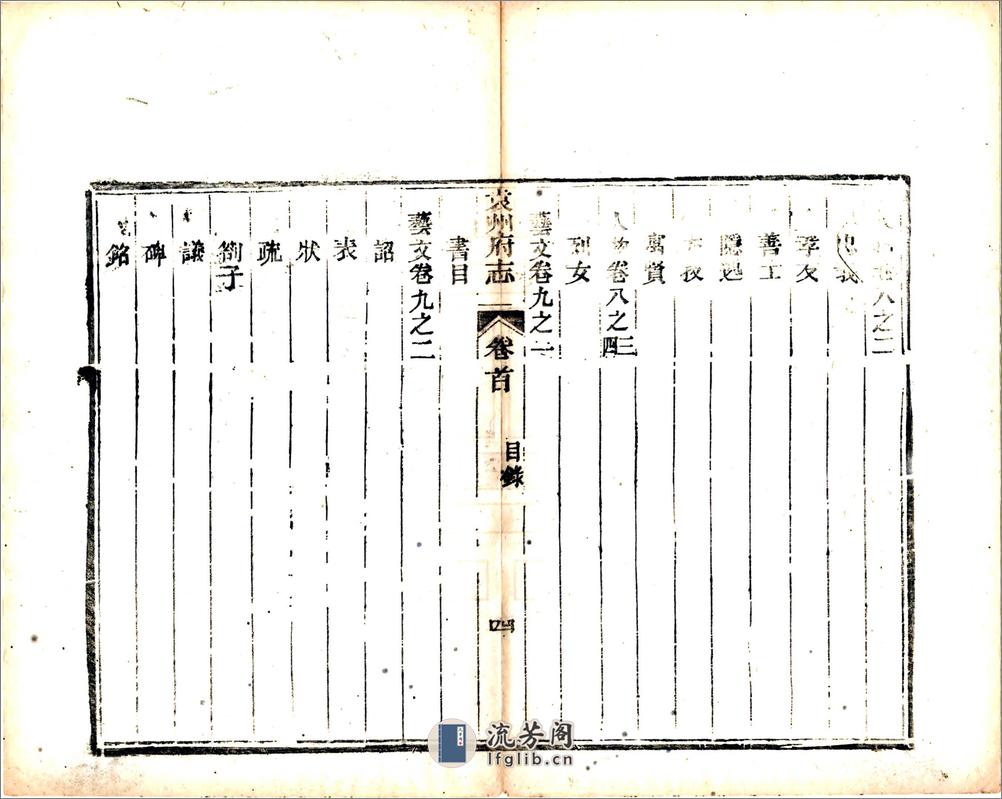 人物卷八之二
忠義
孝友
善士
隱逸
方技
寓賢
人物卷八之三四
列女
藝文卷九之一
袁州府志 卷首 目錄 四
書目
藝文卷九之二
詔
表
狀
疏
劄子
議
碑
銘
流芳阁
lfglib.cn